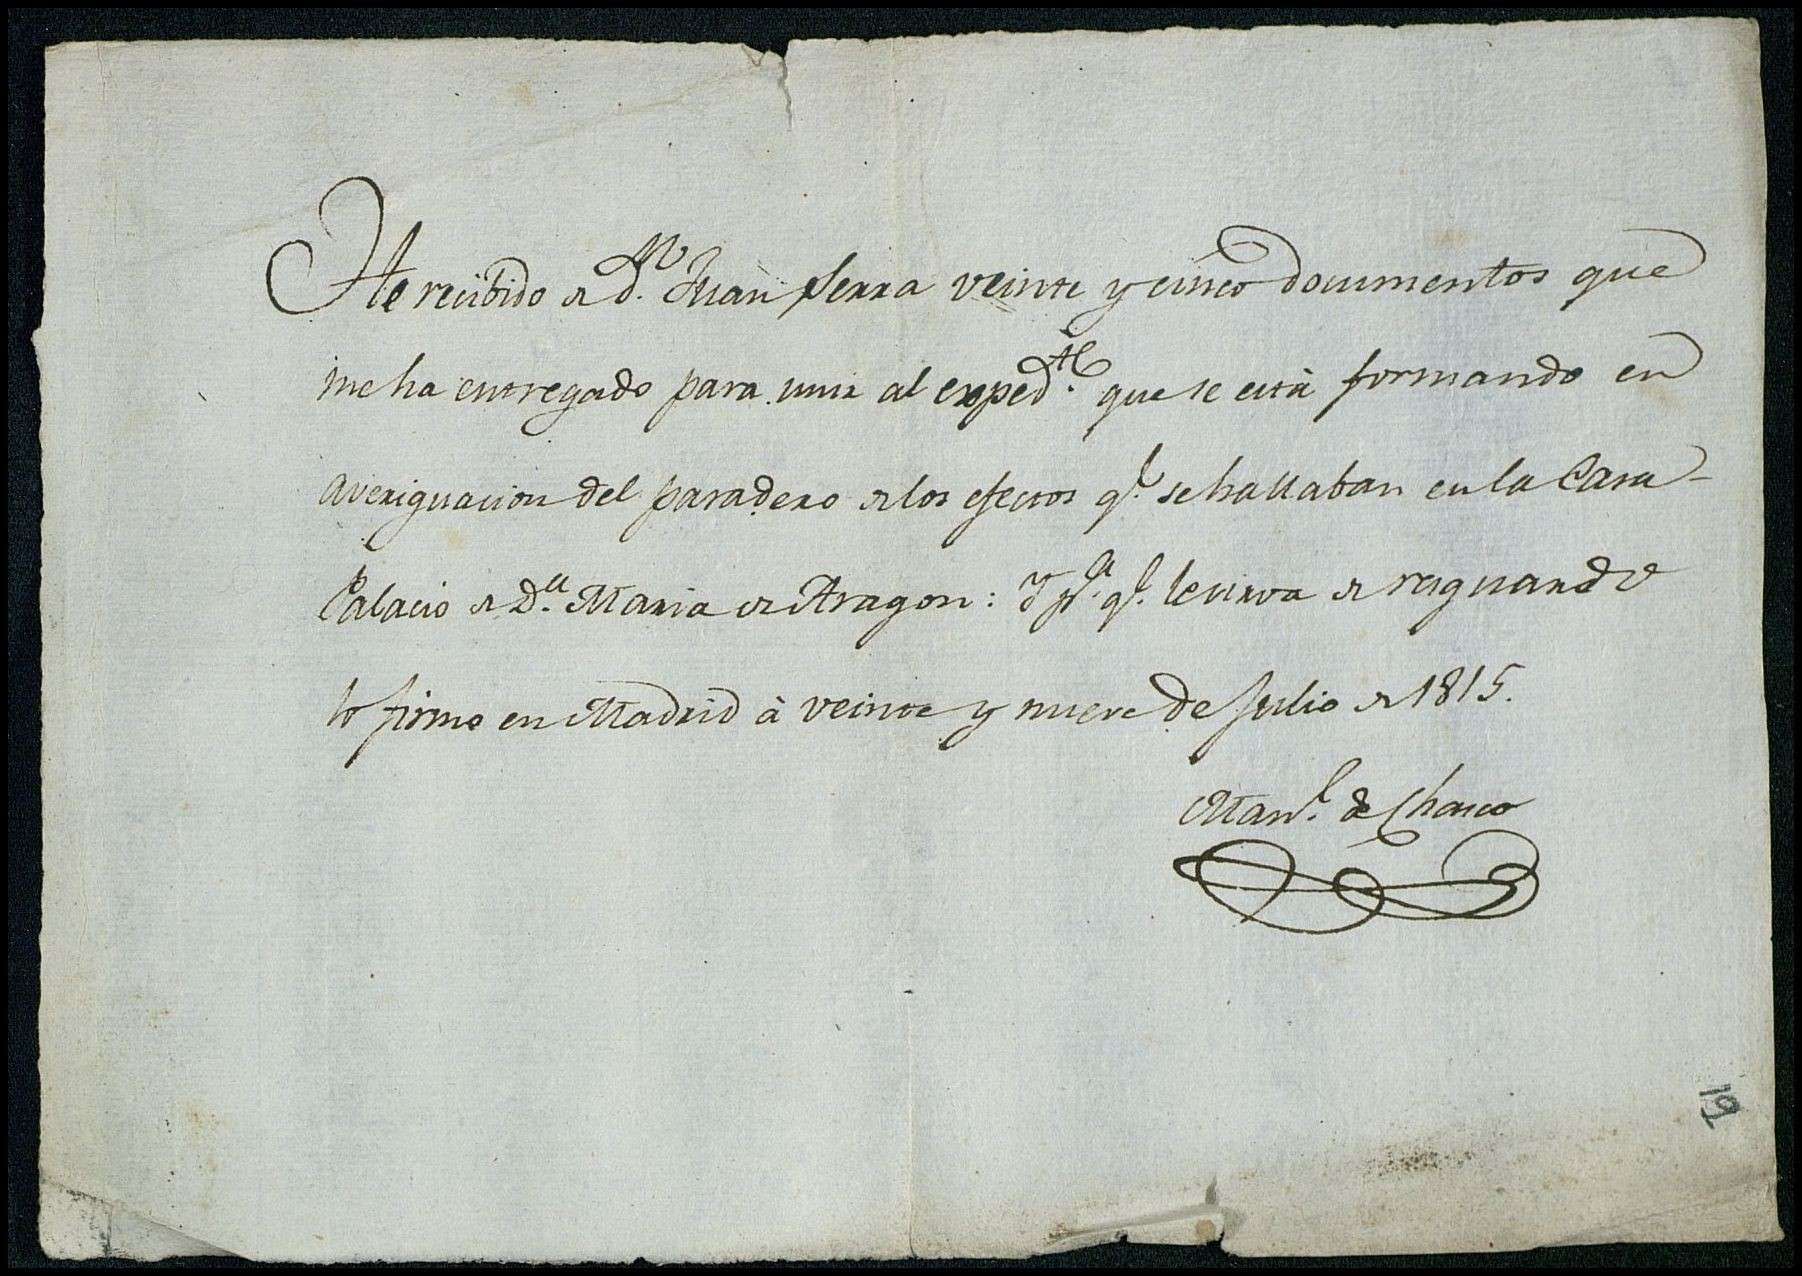 He recibido de D.n Juan Serra veinte y cinco documentos que
me ha entregado para unir al exped.te que se está formando en
averiguacion del paradero de los efectos q.e se hallaban en la Casa-
Palacio de D.a Maria de Aragon: y p.a q.e le sirva de resguardo
lo firmo en Madrid à veinte y nueve de Julio de 1815.
Man.l de
19